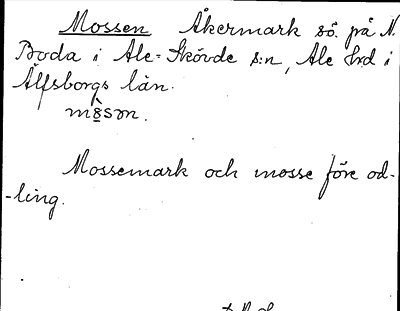 Mossen Åkermark sö. på N.
Boda i Ale-Skövde s:n, Ale hd i
Älfsborgs län.
Mossemark och mosse före od-
-ling.